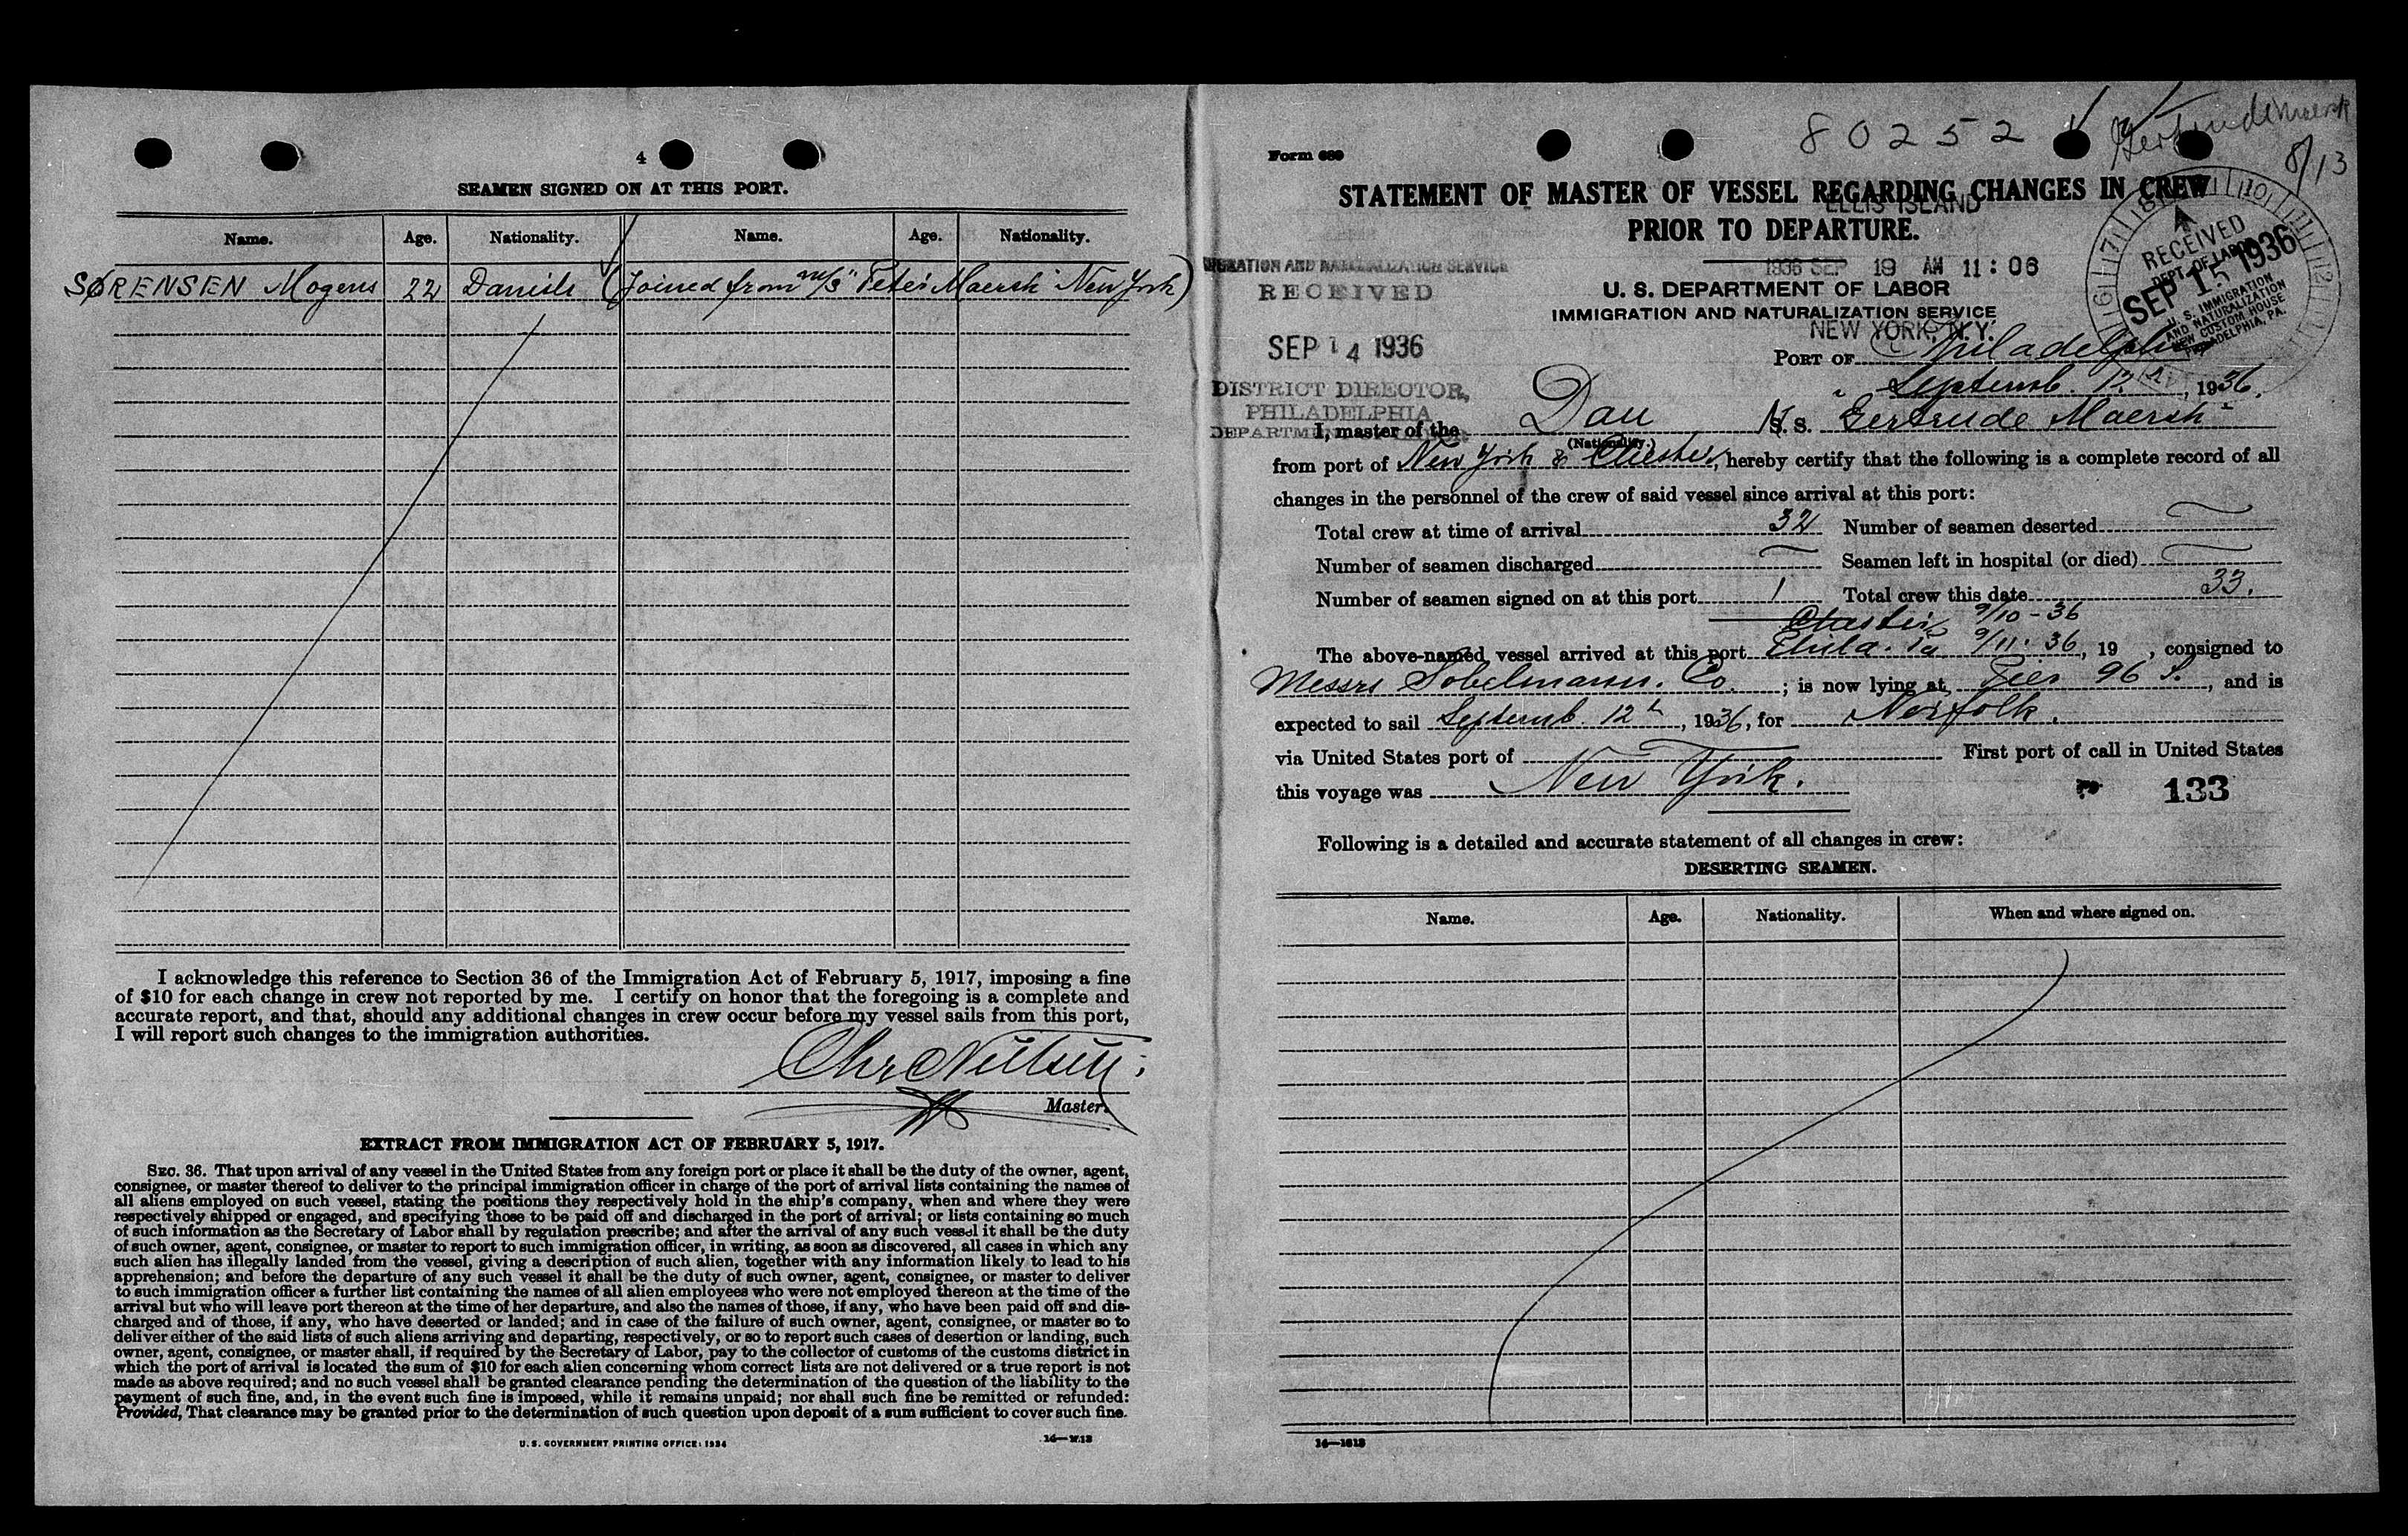 4
SEAMEN SIGNED ON AT THIS PORT.
Name. Age. Nationality. Name. Age. Nationality.
SØRENSEN Mogens 22 Danish (Joined from m/s "Peter Maersk" New York)
I acknowledge this reference to Section 36 of the Immigration Act of February 5, 1917, imposing a fine
of $10 for each change in crew not reported by me. I certify on honor that the foregoing is a complete and
accurate report, and that, should any additional changes in crew occur before my vessel sails from this port,
I will report such changes to the immigration authorities.
Chr Nielsen
Master.
EXTRACT FROM IMMIGRATION ACT OF FEBRUARY 5, 1917.
SEC. 36. That upon arrival of any vessel in the United States from any foreign port or place it shall be the duty of the owner, agent,
consignee, or master thereof to deliver to the principal immigration officer in charge of the port of arrival lists containing the names of
all aliens employed on such vessel, stating the positions they respectively hold in the ship's company, when and where they were
respectively shipped or engaged, and specifying those to be paid off and discharged in the port of arrival; or lists containing so much
of such information as the Secretary of Labor shall by regulation prescribe; and after the arrival of any such vessel it shall be the duty
of such owner, agent, consignee, or master to report to such immigration officer, in writing, as soon as discovered, all cases in which any
such alien has illegally landed from the vessel, giving a description of such alien, together with any information likely to lead to his
apprehension; and before the departure of any such vessel it shall be the duty of such owner, agent, consignee, or master to deliver
to such immigration officer a further list containing the names of all alien employees who were not employed thereon at the time of the
arrival but who will leave port thereon at the time of her departure, and also the names of those, if any, who have been paid off and dis-
charged and of those, if any, who have deserted or landed; and in case of the failure of such owner, agent, consignee, or master so to
deliver either of the said lists of such aliens arriving and departing, respectively, or so to report such cases of desertion or landing, such
owner, agent, consignee, or master shall, if required by the Secretary of Labor, pay to the collector of customs of the customs district in
which the port of arrival is located the sum of $10 for each alien concerning whom correct lists are not delivered or a true report is not
made as above required; and no such vessel shall be granted clearance pending the determination of the question of the liability to the
payment of such fine, and, in the event such fine is imposed, while it remains unpaid; nor shall such fine be remitted or refunded:
Provided, That clearance may be granted prior to the determination of such question upon deposit of a sum sufficient to cover such fine.
U. S. GOVERNMENT PRINTING OFFICE: 1934
80252 Gertrude Maersk
8/13
Form 689
STATEMENT OF MASTER OF VESSEL REGARDING CHANGES IN CREW
ELLIS ISLAND
PRIOR TO DEPARTURE.
IMMIGRATION AND NATURALIZATION SERVICE
RECEIVED
SEP 14 1936
DISTRICT DIRECTOR,
PHILADELPHIA
1936 SEP 19 AM 11:06
U. S. DEPARTMENT OF LABOR
IMMIGRATION AND NATURALIZATION SERVICE
NEW YORK, N.Y.
RECEIVED
DEPT. OF LABOR
SEP 15 1936
U. S. IMMIGRATION
AND NATURALIZATION
NEW CUSTOM HOUSE
PHILADELPHIA, PA.
PORT OF Philadelphia
Septemb. 12, 1936.
I, master of the Dan S. S. Gertrude Maersk
(Nationality.)
from port of New York & Chester, hereby certify that the following is a complete record of all
changes in the personnel of the crew of said vessel since arrival at this port:
Total crew at time of arrival 32 Number of seamen deserted
Number of seamen discharged Seamen left in hospital (or died)
Number of seamen signed on at this port 1 Total crew this date 33.
Chester 9/10-36
The above-named vessel arrived at this port Phila. Pa 9/11. 36, 19 , consigned to
Messrs Sobelmann. Co. ; is now lying at Pier 96 S. , and is
expected to sail Septemb. 12th, 1936, for Norfolk.
via United States port of First port of call in United States
this voyage was New York.
133
Following is a detailed and accurate statement of all changes in crew:
DESERTING SEAMEN.
Name. Age. Nationality. When and where signed on.